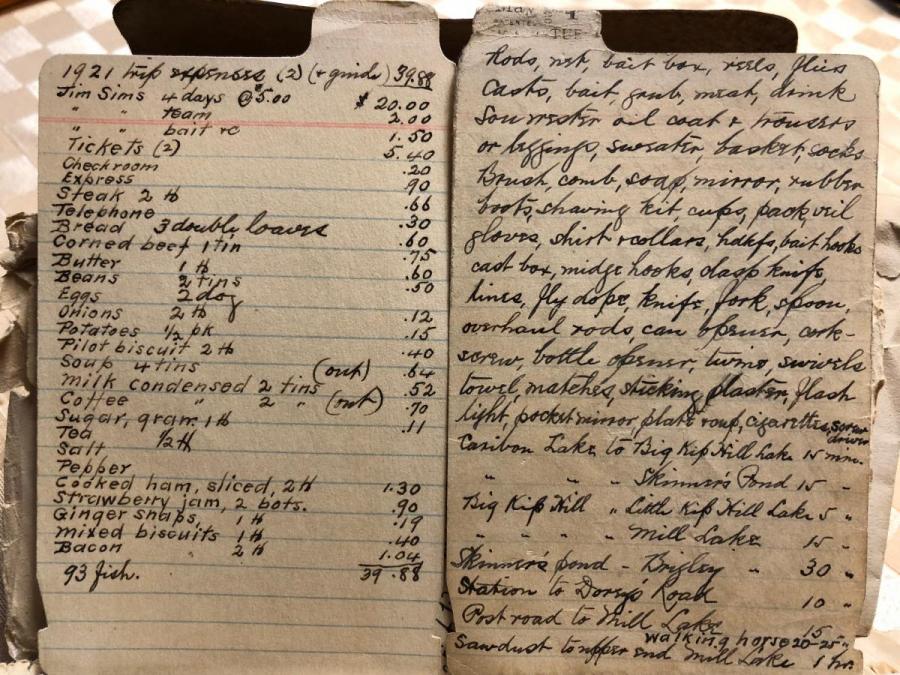 1921 trip expenses (2) (+ guide) 39.88
Jim Sims 4 days @ $5.00 $20.00
" " team 2.00
" " bait rc 1.50
Tickets (2) 5.40
Checkroom .20
Express .90
Steak 2 lb .66
Telephone .30
Bread 3 double loaves .60
Corned beef 1 tin .75
Butter 1 lb .60
Beans 2 tins .50
Eggs 2 doz
Onions 2 lb .12
Potatoes 1/2 pk .15
Pilot biscuit 2 lb .40
Soup 4 tins (out) .64
Milk condensed 2 tins .52
Coffee " 2 " (out) .70
Sugar, gran. 1 lb .11
Tea 1/2 lb
Salt
Pepper
Cooked ham, sliced, 2 lb 1.30
Strawberry jam, 2 bots. .90
Ginger snaps, 1 lb .19
Mixed biscuits 1 lb .40
Bacon 2 lb 1.04
93 fish. 39.88
Rods, net, bait box, reels, flies
Casts, bait, grub, meat, drink
Sou'wester oil coat + trousers
or leggings, sweater, basket, socks
Brush, comb, soap, mirror, rubber
boots, shaving kit, cups, pack, veil
gloves, shirt + collars, hdkfs, bait hooks
cast box, midge hooks, clasp knife
lines, fly dope, knife, fork, spoon,
overhaul rods, can opener, cork-
screw, bottle opener, twine, swivels
towel, matches, sticking plaster, flash
light, pocket mirror, plate, cigarettes, screw
driver
Caribou Lake to Big Kip Hill Lake 15 min.
" " " Skinner's Pond 15 "
Big Kip Hill " Little Kip Hill Lake 5 "
" " " " Mill Lake 15 "
Skinner's pond - Brigley " 30 "
Station to Dorey's Road 10 "
Post road to Mill Lake 15 "
walking, horse 20-25 "
Sawdust to upper end Mill Lake 1 hr.